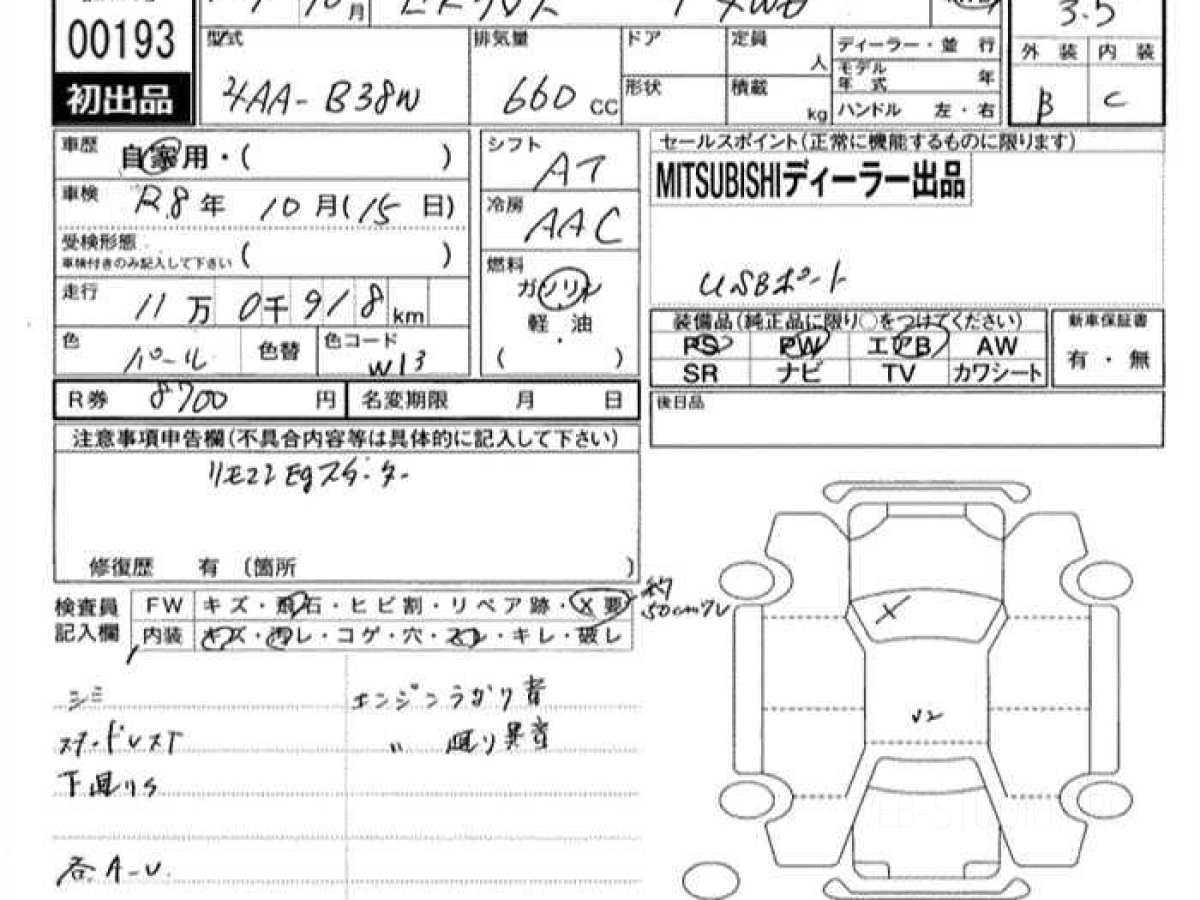 00193
初出品
10 月
4WD
3.5
型式 4AA-B38W
排気量 660 CC
ドア
形状
定員 人
積載 kg
ディーラー・並 行
モデル年式 年
ハンドル 左・右
外 装 内 装
B C
車歴 自家用・( )
車検 R8年 10月(15日)
受検形態
車検付きのみ記入して下さい ( )
走行 11万 0千918km
色 パール 色替 色コード W13
シフト AT
冷房 AAC
燃料
ガソリン
軽・油
( )
セールスポイント(正常に機能するものに限ります)
MITSUBISHIディーラー出品
USBポート
装備品(純正品に限り○をつけてください)
PS PW エアB AW
SR ナビ TV カワシート
新車保証書
有・無
R券 8700 円 名変期限 月 日
後日品
注意事項申告欄(不具合内容等は具体的に記入して下さい)
リモコンEgスターター
修復歴 有 (箇所 )
検査員記入欄
FW キズ・飛石・ヒビ割・リペア跡・X要
約50cmワレ
内装 キズ・汚レ・コゲ・穴・スレ・キレ・破レ
シミ エンジンうなり音
〃 廻り異音
下廻りS
各A-U.
X
U2